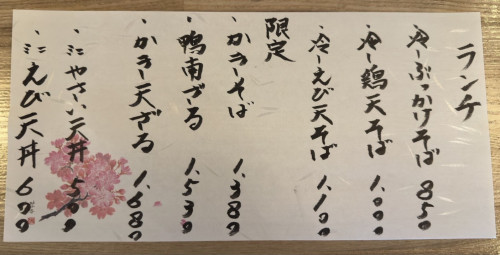 ランチ
・冷ーぶっかけそば 850
・冷ー鶏天そば 1,000
・冷ーえび天そば 1,100
限定
・かきそば 1,380
・鴨南ざる 1,530
・かきー天ざる 1,680
・ミニやさい天丼 500
・ミニえび天丼 600